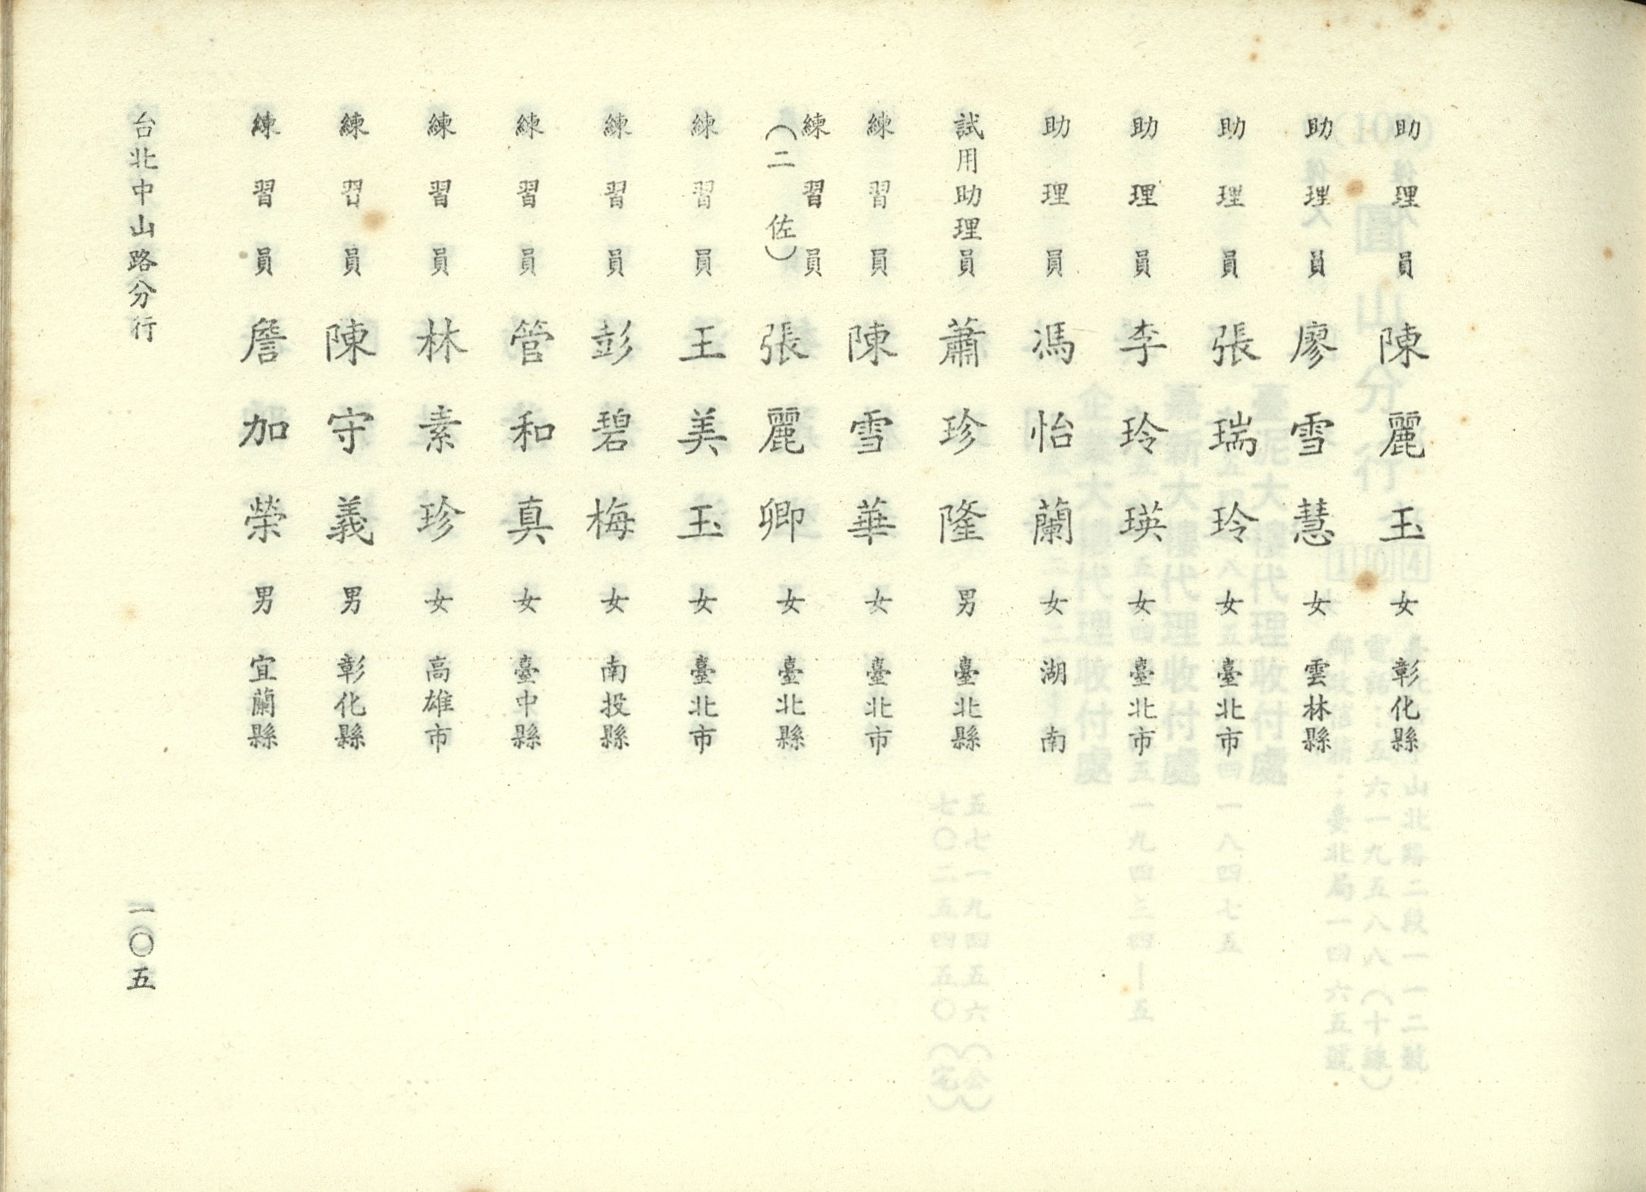 助理員 陳麗玉 女 彰化縣
助理員 廖雪慧 女 雲林縣
助理員 張瑞玲 女 臺北市
助理員 李玲瑛 女 臺北市
助理員 馮怡蘭 女 湖南
試用助理員 蕭珍隆 男 臺北縣
練習員 陳雪華 女 臺北市
練習員(二佐) 張麗卿 女 臺北縣
練習員 王美玉 女 臺北市
練習員 彭碧梅 女 南投縣
練習員 管和真 女 臺中縣
練習員 林素珍 女 高雄市
練習員 陳守義 男 彰化縣
練習員 詹加榮 男 宜蘭縣
台北中山路分行 一〇五